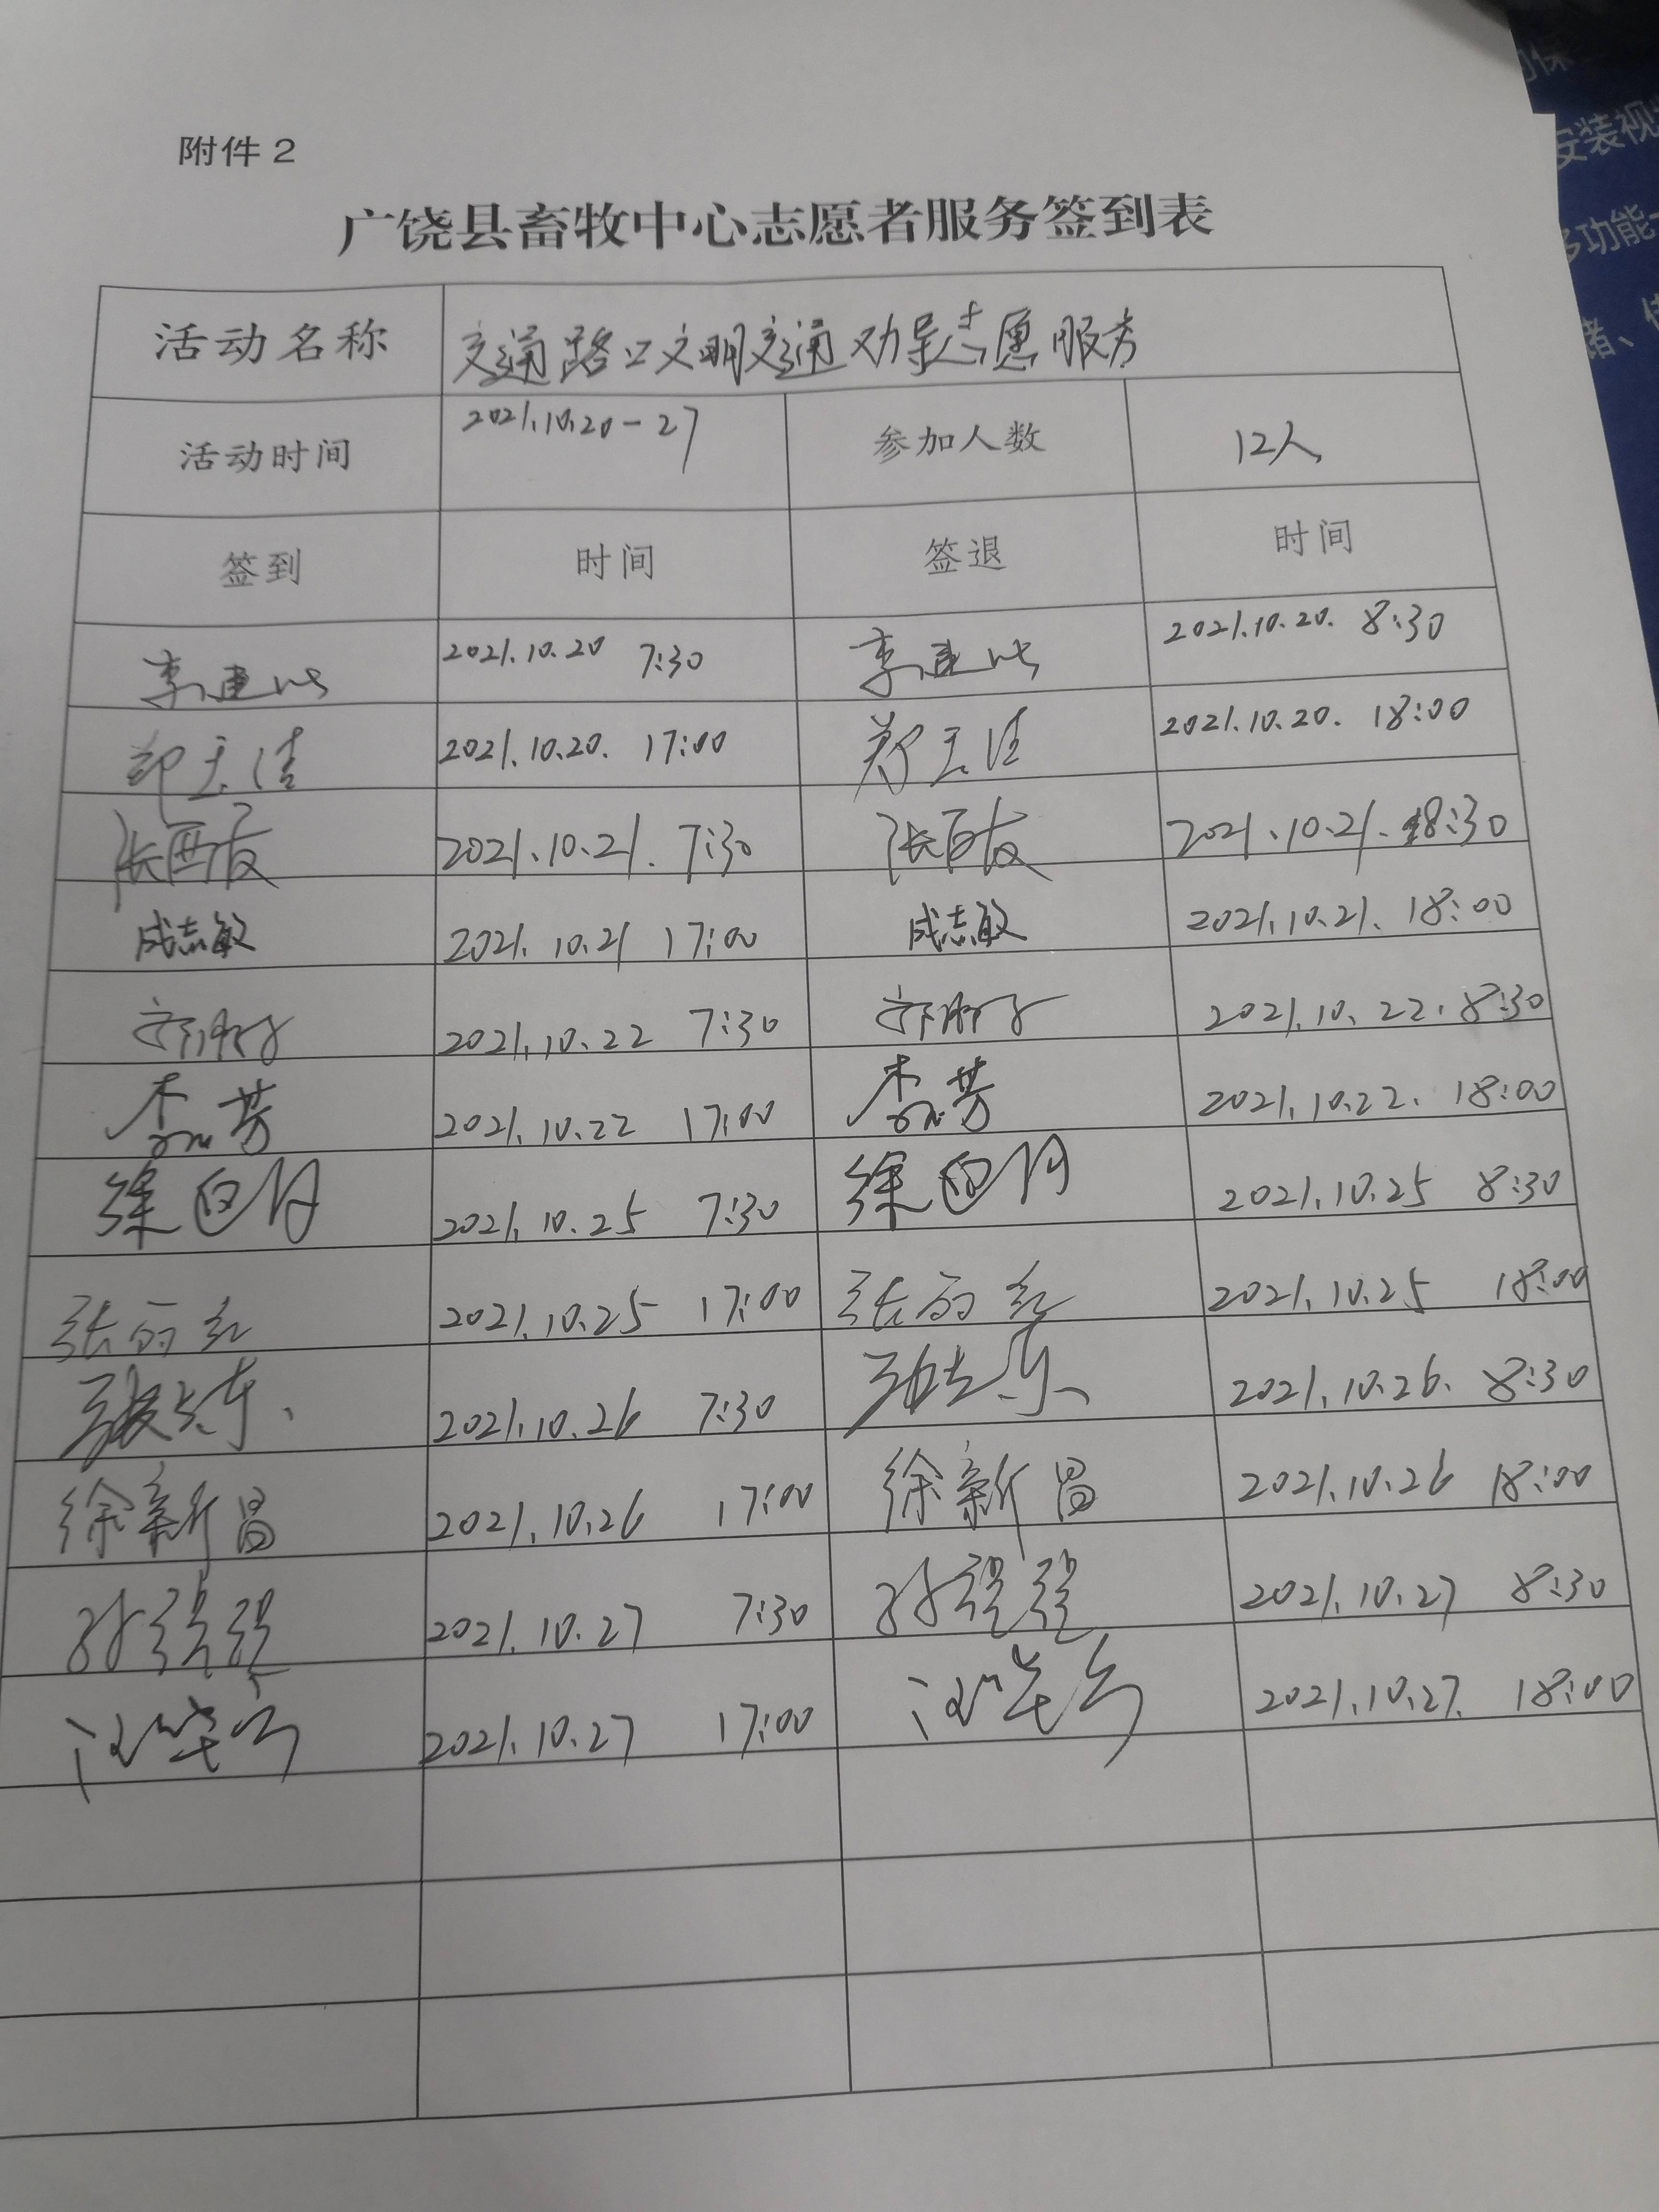 附件2
广饶县畜牧中心志愿者服务签到表
活动名称 交通路口文明交通劝导志愿服务
活动时间 2021.10.20-27 参加人数 12人
签到 时间 签退 时间
2021.10.20 7:30 2021.10.20. 8:30
2021.10.20. 17:00 2021.10.20. 18:00
2021.10.21. 7:30 2021.10.21. 8:30
成志敏 2021.10.21 17:00 成志敏 2021.10.21. 18:00
2021.10.22 7:30 2021.10.22. 8:30
2021.10.22 17:00 2021.10.22. 18:00
2021.10.25 7:30 2021.10.25 8:30
张丽红 2021.10.25 17:00 张丽红 2021.10.25 18:00
2021.10.26 7:30 2021.10.26. 8:30
徐新昌 2021.10.26 17:00 徐新昌 2021.10.26 18:00
孙强强 2021.10.27 7:30 孙强强 2021.10.27 8:30
2021.10.27 17:00 2021.10.27. 18:00
安装视
多功能